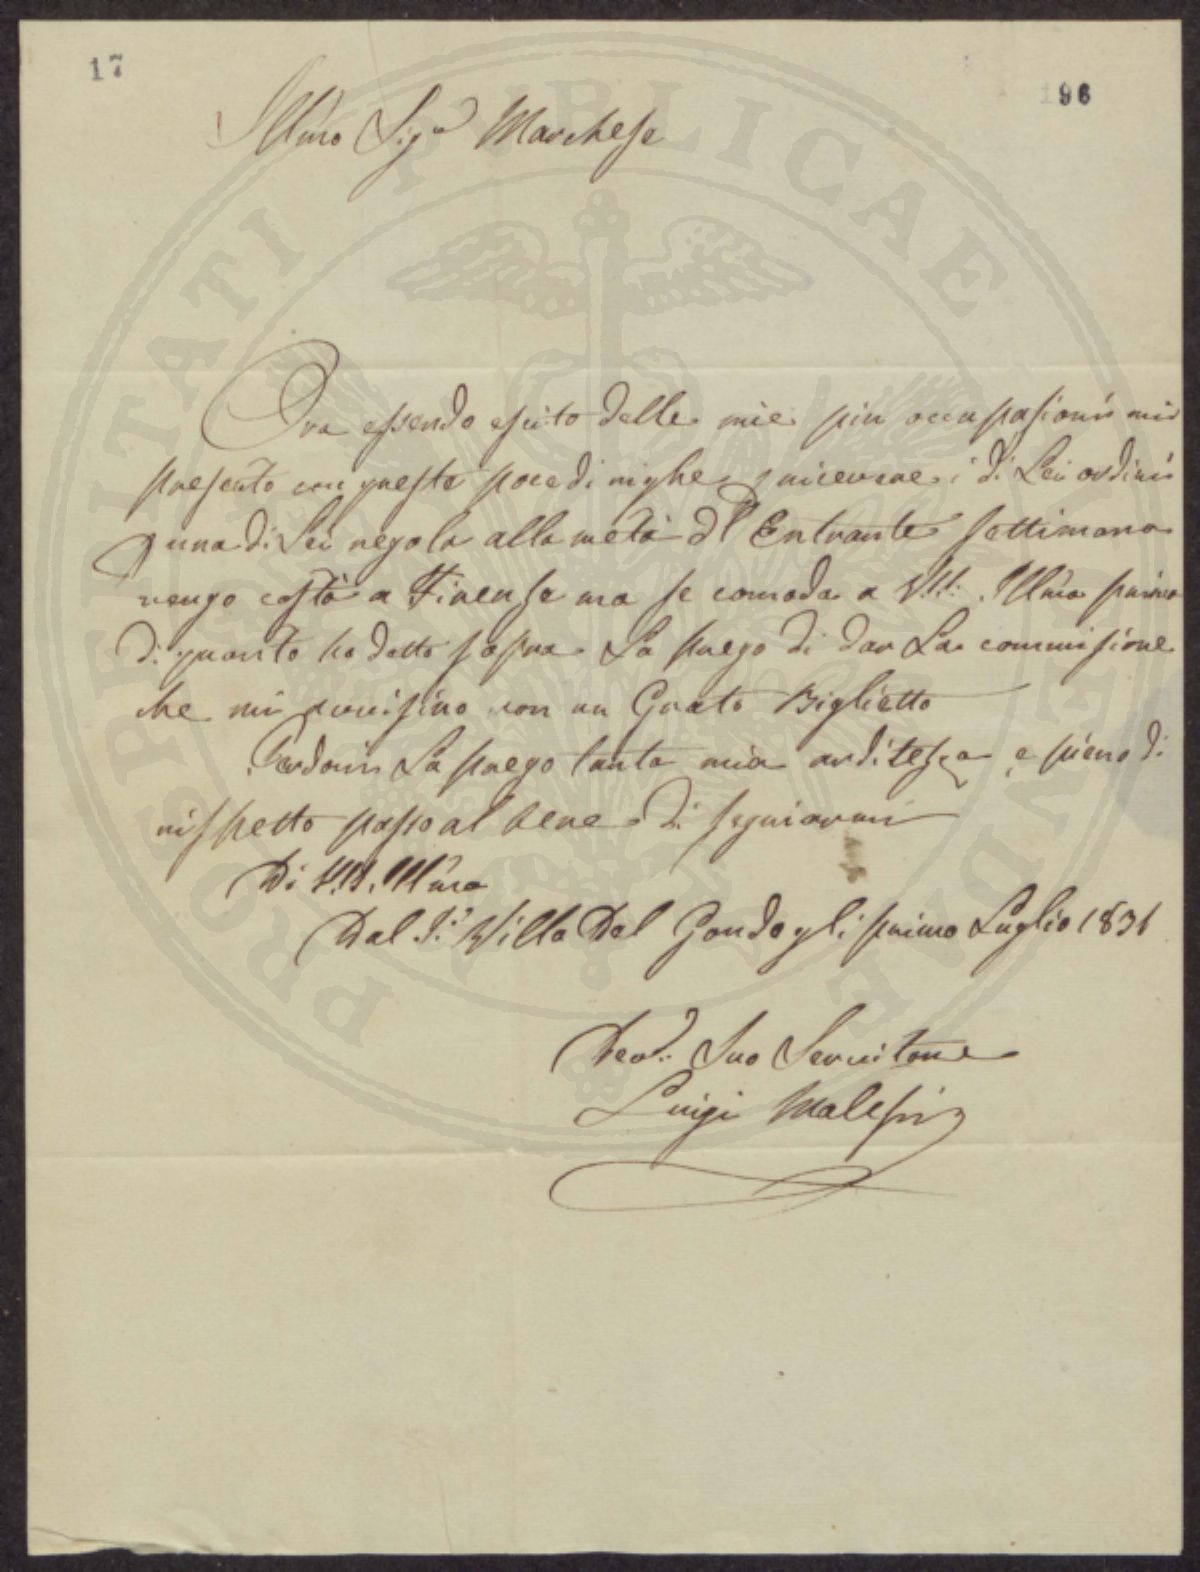 17
196
Ill.mo Sig.re Marchese
Ora essendo esuito delle mie piu occupasioni mi
presento con queste poce di righe p ricevere i di Lei ordini
p una di Lei regola alla metà dl Entrante settimana
vengo costà a Firense ma se comoda a V.S. Ill.ma prima
di quanto ho detto sopra La prego di dar La commisione
che mi avvisino con un Grato Biglietto
Perdoni La prego tanta mia arditezza e pieno di
rispetto passo al bene di segniarmi
Di V.S. Ill.ma
Dal.la Villa Del Gondo gli primo Luglio 1831
Dev.mo Suo Servitore
Luigi Malesci
PROSPERITATI PUBLICAE AUGENDAE